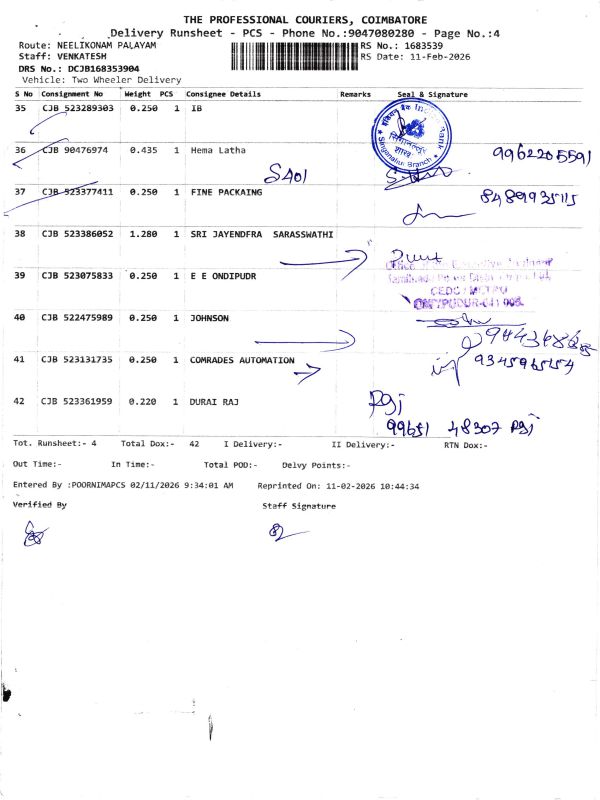 THE PROFESSIONAL COURIERS, COIMBATORE
Delivery Runsheet - PCS - Phone No.:9047080280 - Page No.:4
Route: NEELIKONAM PALAYAM RS No.: 1683539
Staff: VENKATESH RS Date: 11-Feb-2026
DRS No.: DCJB168353904
Vehicle: Two Wheeler Delivery
S No Consignment No Weight PCS Consignee Details Remarks Seal & Signature
35 CJB 523289303 0.250 1 IB
36 CJB 90476974 0.435 1 Hema Latha 9962205591
SA01
37 CJB 523377411 0.250 1 FINE PACKAING 8489935115
38 CJB 523386052 1.280 1 SRI JAYENDFRA SARASSWATHI
39 CJB 523075833 0.250 1 E E ONDIPUDR
CEDC / METRO
ONDIPUDUR-641 005
40 CJB 522475989 0.250 1 JOHNSON
41 CJB 523131735 0.250 1 COMRADES AUTOMATION 9345965154
42 CJB 523361959 0.220 1 DURAI RAJ
99651 48307
Tot. Runsheet:- 4 Total Dox:- 42 I Delivery:- II Delivery:- RTN Dox:-
Out Time:- In Time:- Total POD:- Delvy Points:-
Entered By :POORNIMAPCS 02/11/2026 9:34:01 AM Reprinted On: 11-02-2026 10:44:34
Verified By Staff Signature